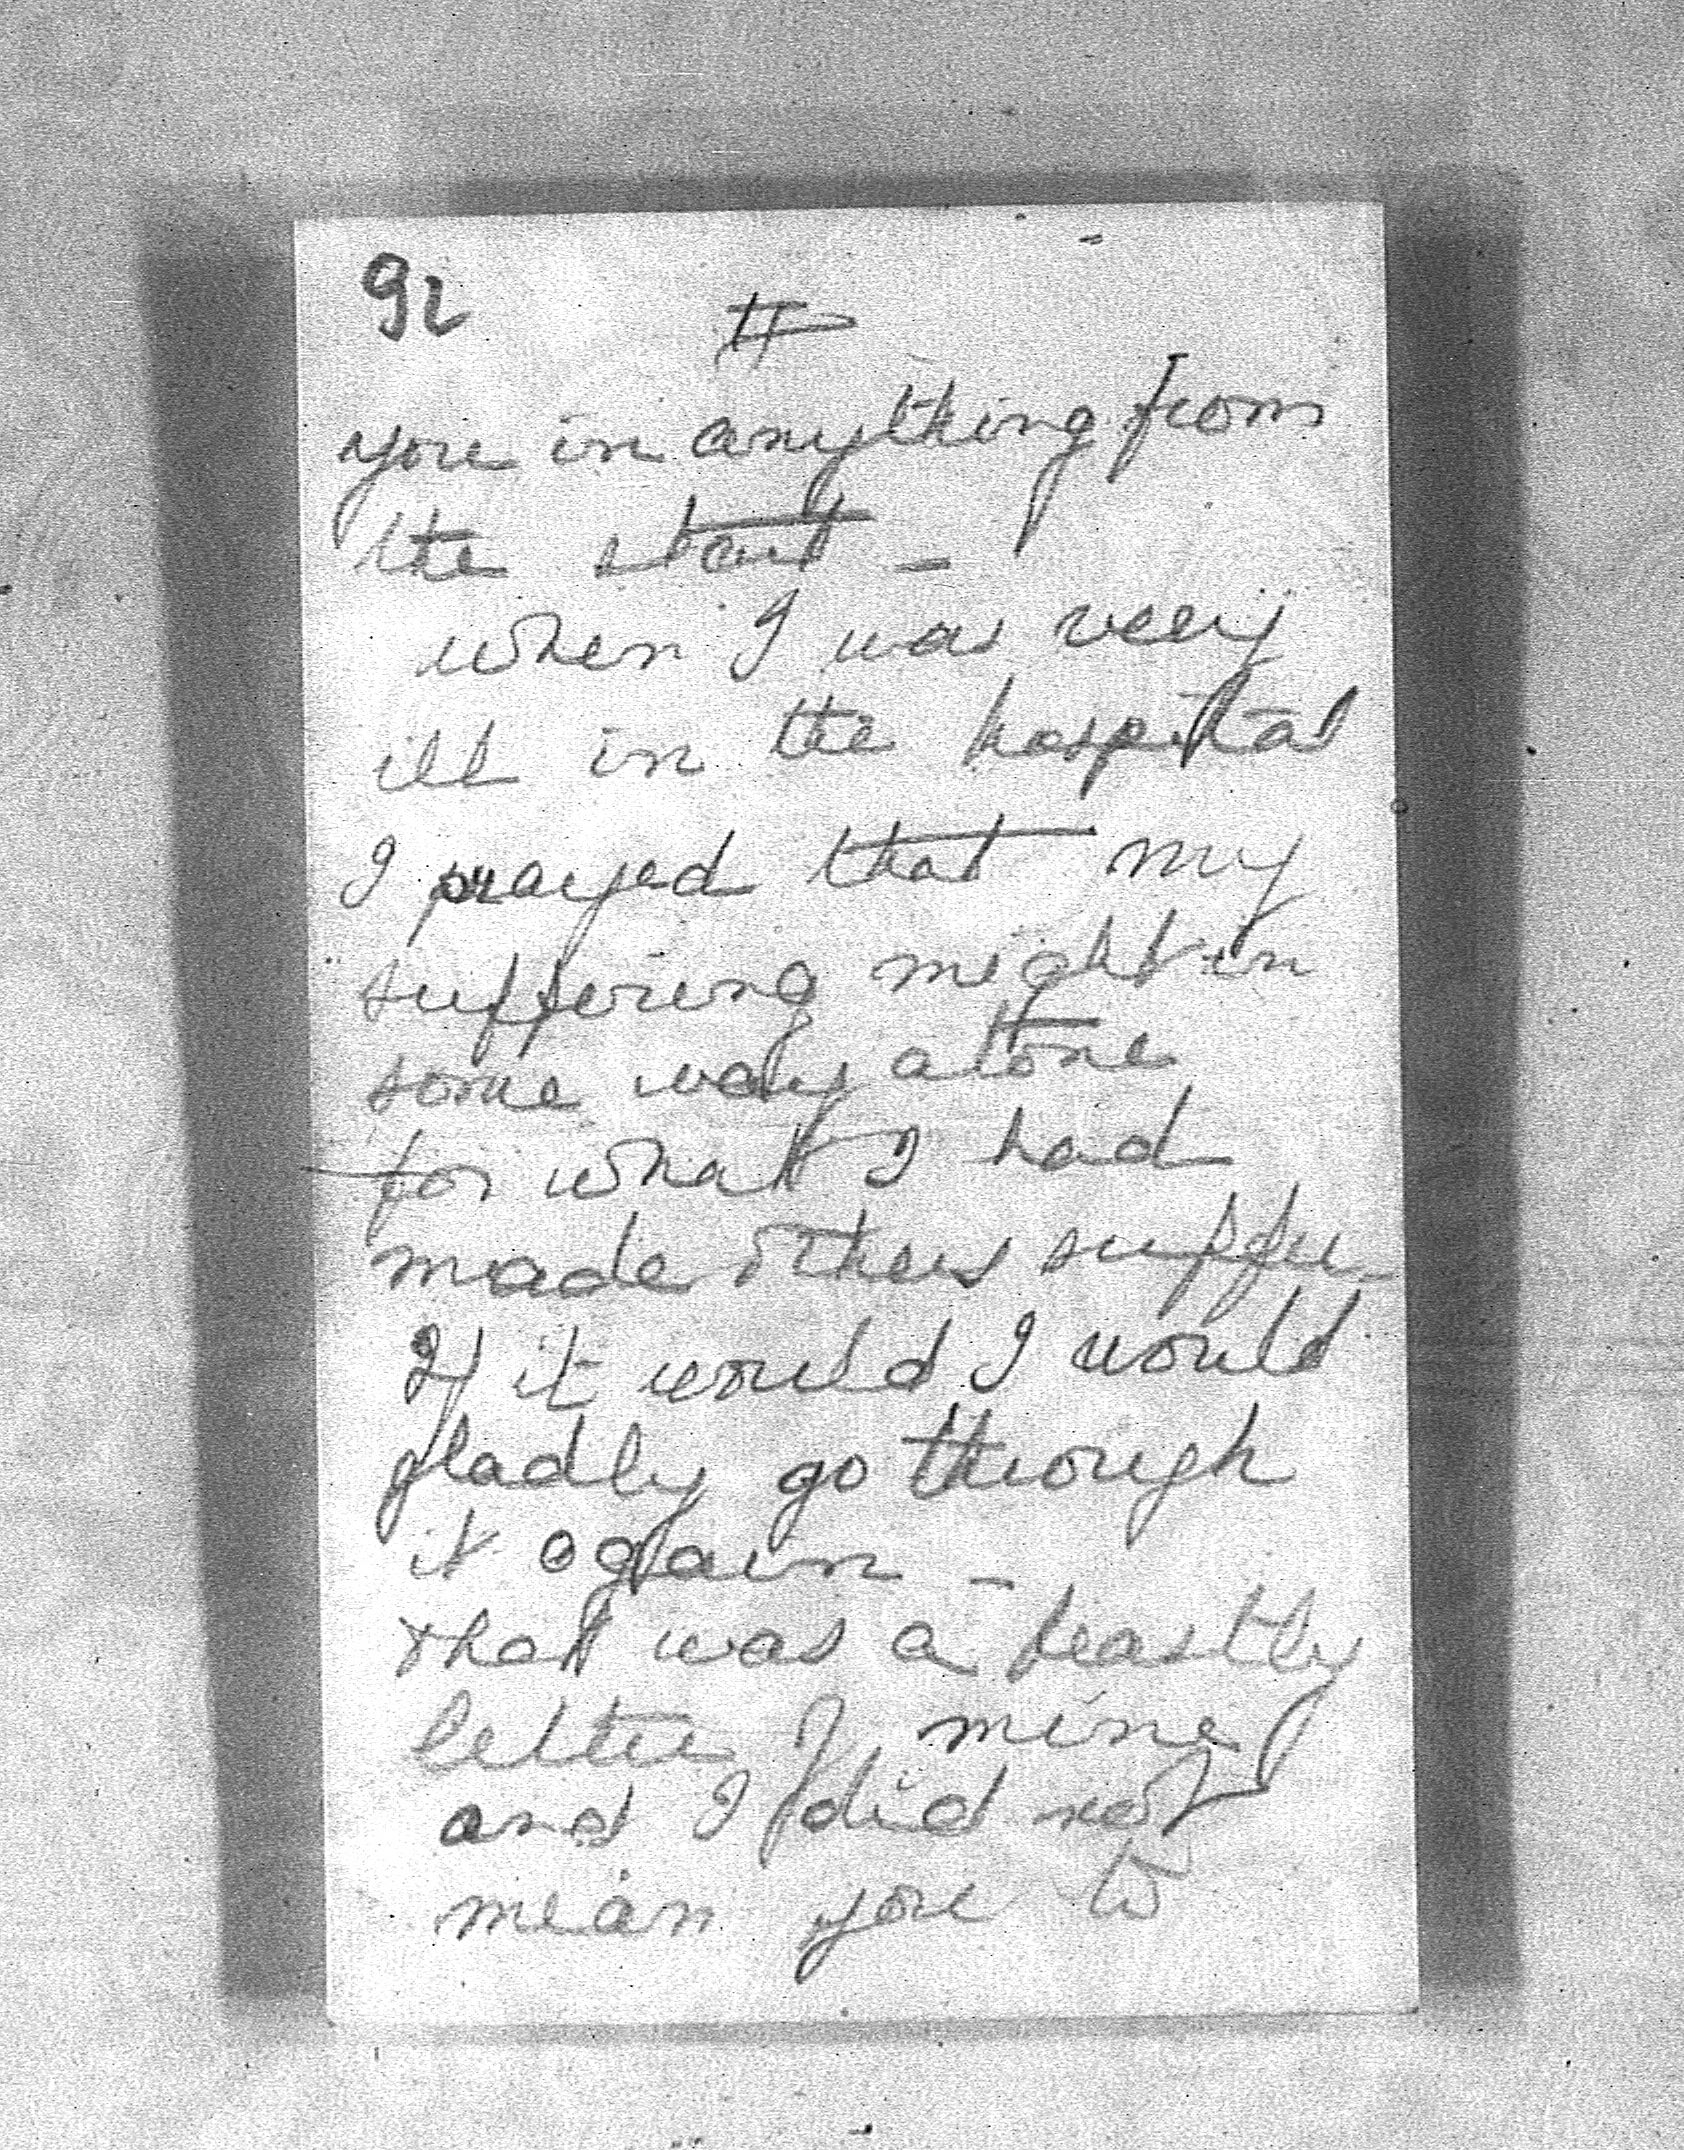 92
II
you in anything from
the start –
when I was very
ill in the hospital
I prayed that my
suffering might in
some way atone
for what I had
made others suffer –
If it would I would
gladly go through
it again –
that was a beastly
letter of mine
and I did not
mean you to